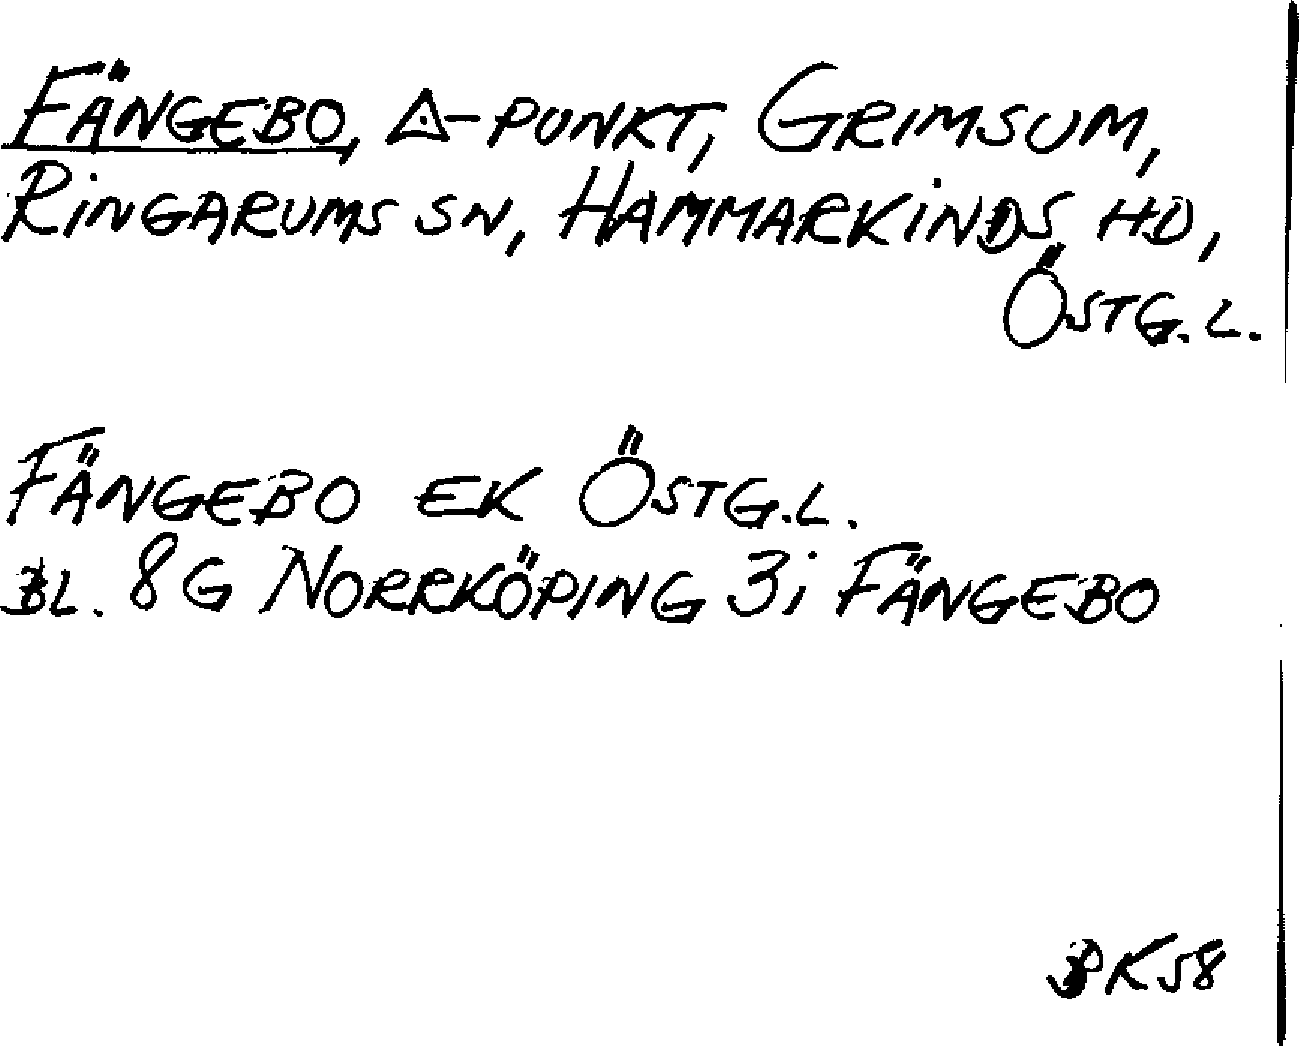 FÄNGEBO, △-PUNKT, GRIMSUM,
RINGARUMS SN, HAMMARKINDS HD,
ÖSTG. L.
FÄNGEBO EK ÖSTG.L.
BL. 8G NORRKÖPING 3i FÄNGEBO